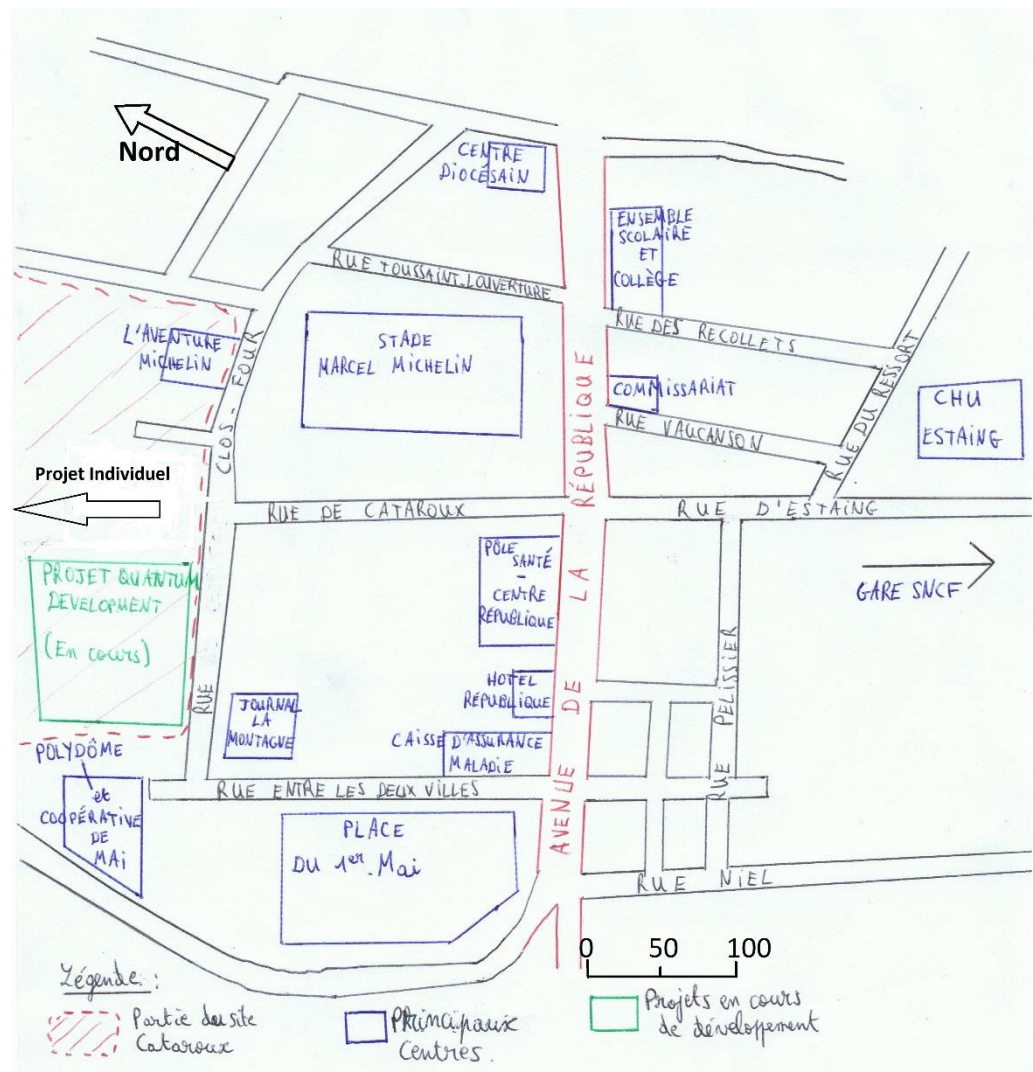 Nord
CENTRE
DIOCÉSAIN
ENSEMBLE
SCOLAIRE
ET
COLLÈGE
RUE TOUSSAINT-LOUVERTURE
RUE DES RECOLLETS
L'AVENTURE
MICHELIN
STADE
MARCEL MICHELIN
COMMISSARIAT
RUE VAUCANSON
RUE DU RESSORT
CHU
ESTAING
RUE CLOS-FOUR
Projet Individuel
RUE DE CATAROUX
RUE D'ESTAING
AVENUE DE LA RÉPUBLIQUE
PROJET QUANTUM
DEVELOPMENT
(En cours)
PÔLE
SANTÉ
-
CENTRE
RÉPUBLIQUE
GARE SNCF
HOTEL
RÉPUBLIQUE
RUE PELISSIER
JOURNAL
LA
MONTAGNE
CAISSE D'ASSURANCE
MALADIE
POLYDÔME
et
COOPÉRATIVE
DE
MAI
RUE ENTRE LES DEUX VILLES
PLACE
DU 1er Mai
RUE NIEL
0 50 100
Légende :
Partie du site
Cataroux
Principaux
Centres.
Projets en cours
de développement